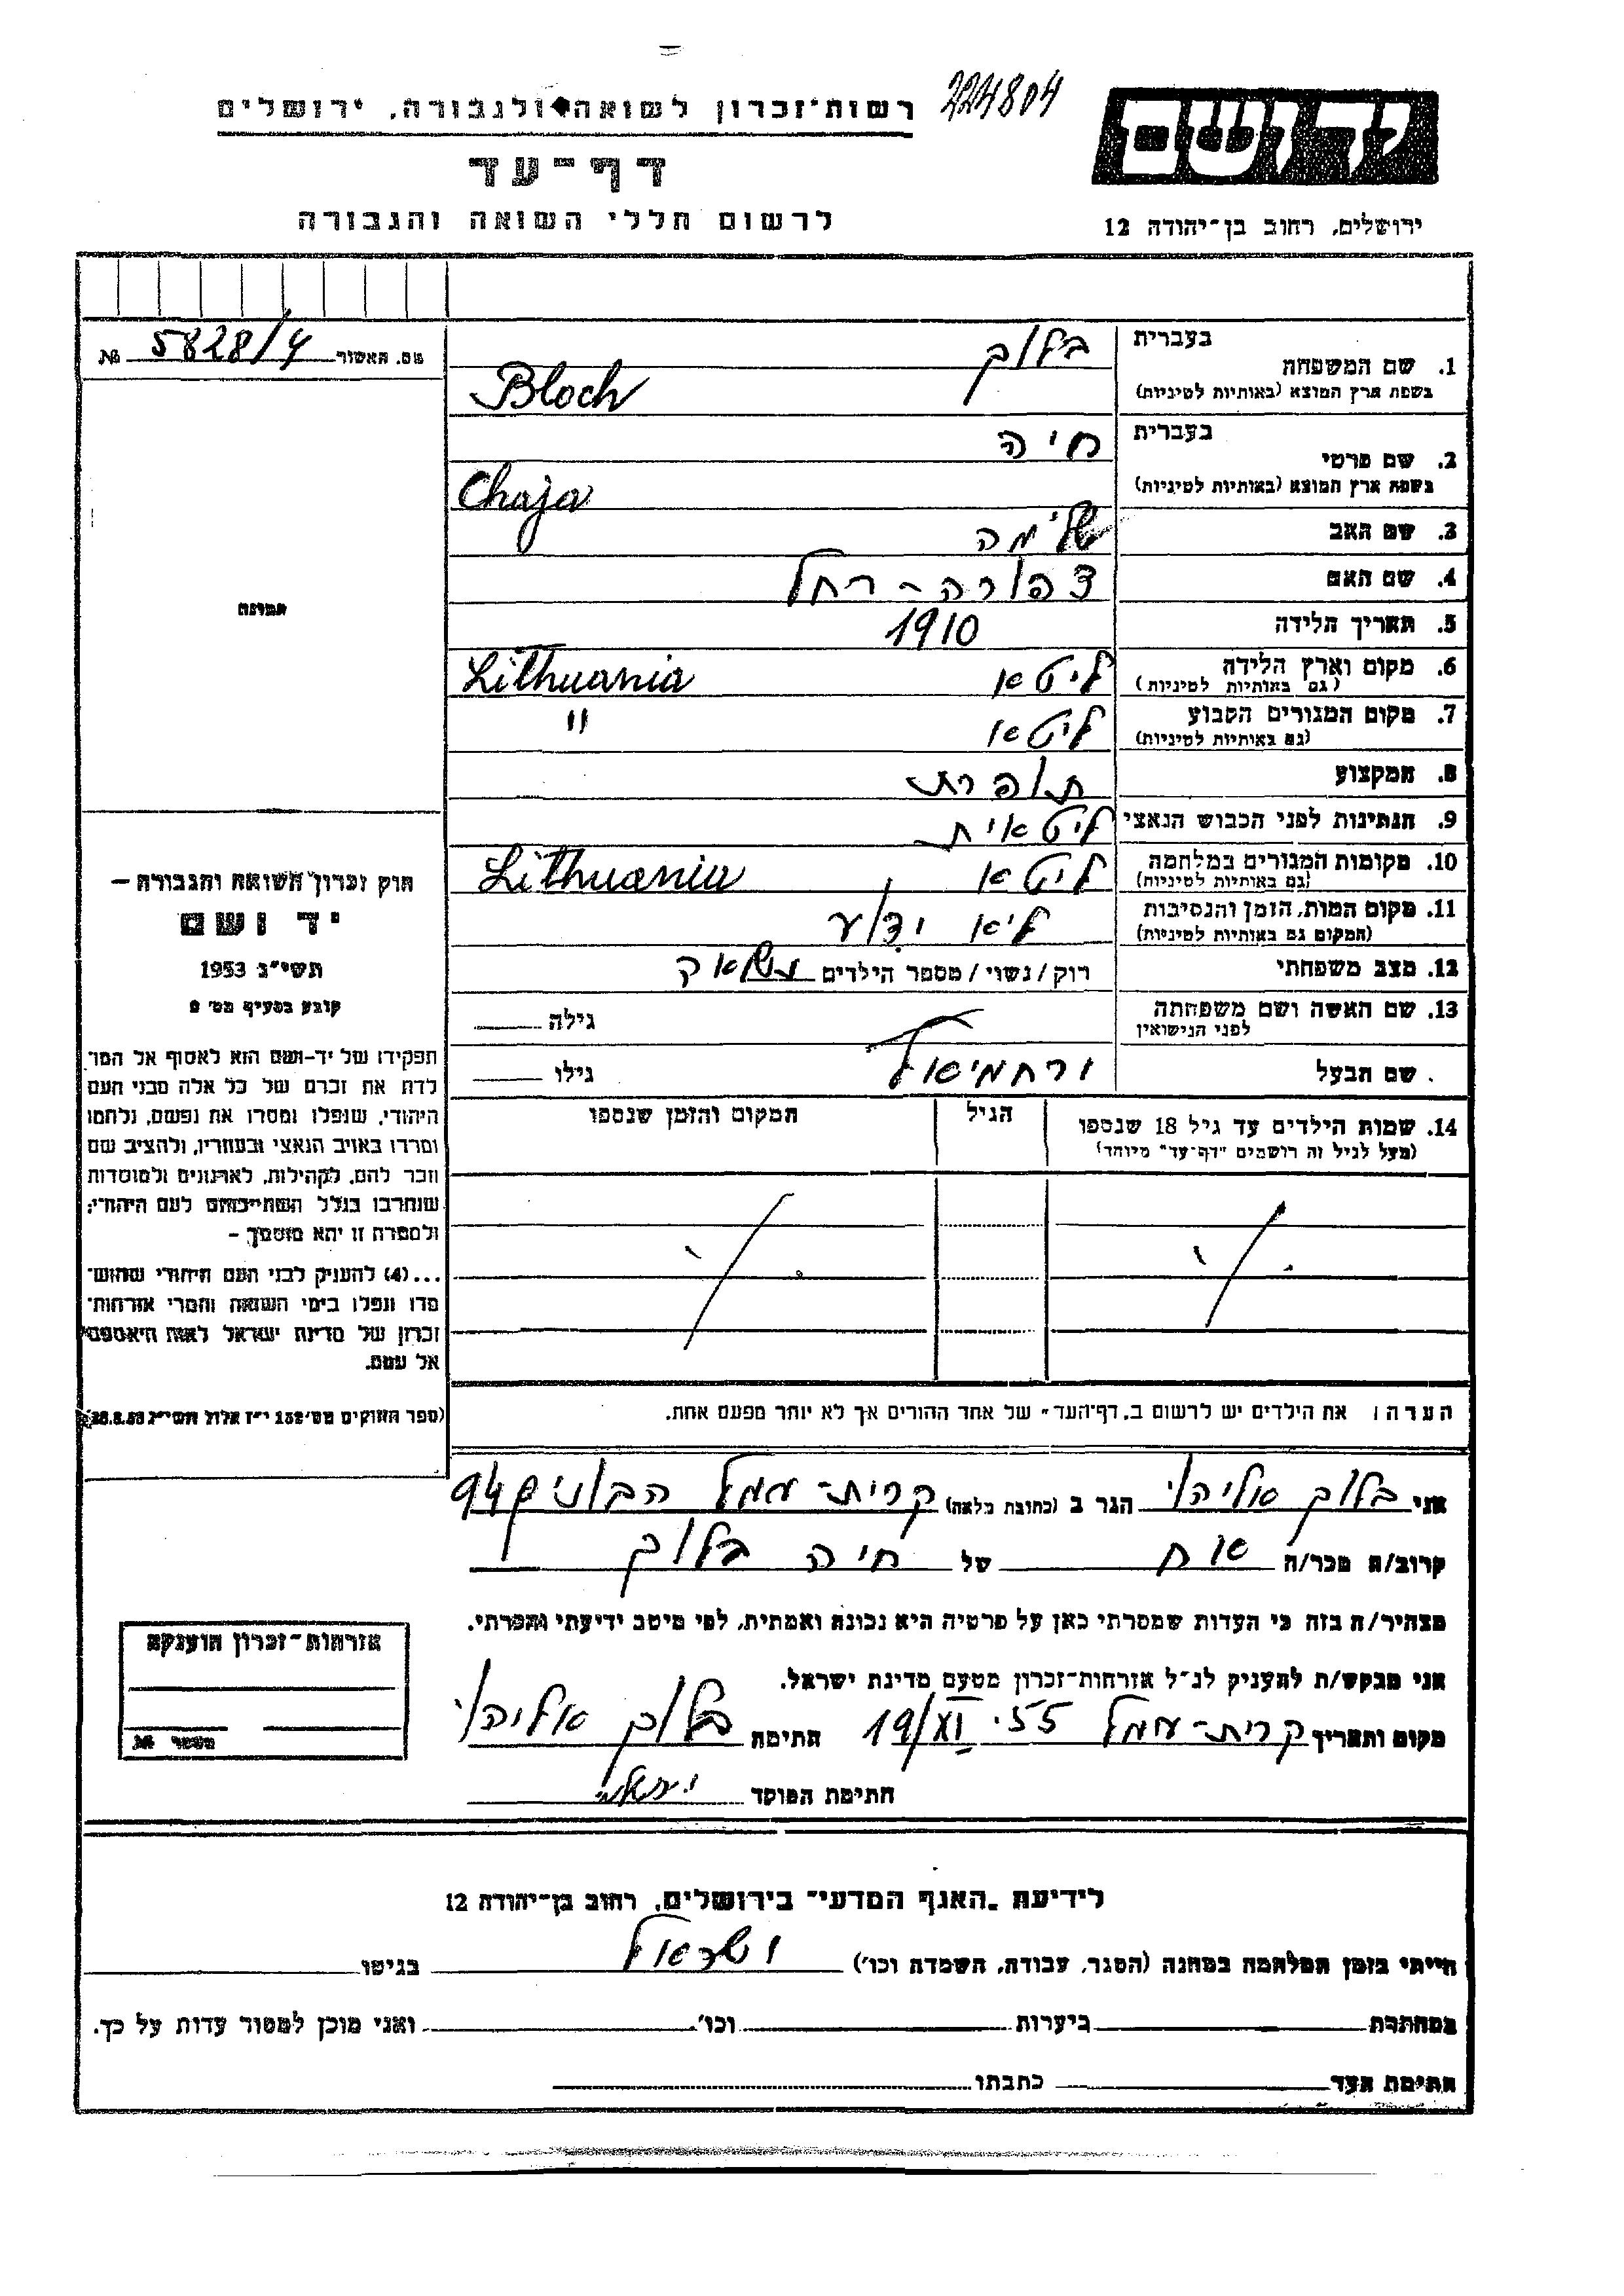 224804
רשות־זכרון לשואה ולגבורה, ירושלים
יד ושם
דף־עד
לרשום חללי השואה והגבורה
ירושלים, רחוב בן־יהודה 12
מס. האשור 5828/4 №
בעברית בלוך
1. שם המשפחה
בשפת ארץ המוצא (באותיות לטיניות) Bloch
בעברית חיה
2. שם פרטי
בשפת ארץ המוצא (באותיות לטיניות) Chaja
3. שם האב
4. שם האם צפורה - רחל
5. תאריך הלידה 1910
6. מקום וארץ הלידה ליטא Lithuania
(גם באותיות לטיניות)
7. מקום המגורים הקבוע ליטא "
(גם באותיות לטיניות)
8. המקצוע תופרת
9. הנתינות לפני הכבוש הנאצי ליטאית
10. מקומות המגורים במלחמה ליטא Lithuania
(גם באותיות לטיניות)
11. מקום המות, הזמן והנסיבות לא ידוע
(המקום גם באותיות לטיניות)
12. מצב משפחתי רוק/נשוי/מספר הילדים
13. שם האשה ושם משפחתה גילה
לפני הנישואין
שם הבעל ירחמיאל גילו
14. שמות הילדים עד גיל 18 שנספו הגיל המקום והזמן שנספו
(מעל לגיל זה רושמים "דף־עד" מיוחד)
הערה: את הילדים יש לרשום ב"דף־העד" של אחד ההורים אך לא יותר מפעם אחת.
תמונה
חוק זכרון השואה והגבורה –
יד ושם
תשי"ג 1953
קובע בסעיף מס' 2
תפקידו של יד־ושם הוא לאסוף אל המו־
לדת את זכרם של כל אלה מבני העם
היהודי, שנפלו ומסרו את נפשם, נלחמו
ומרדו באויב הנאצי ובעוזריו, ולהציב שם
וזכר להם, לקהילות, לארגונים ולמוסדות
שנחרבו בגלל השתייכותם לעם היהודי;
ולמטרה זו יהא מוסמך –
...(4) להעניק לבני העם היהודי שהוש־
מדו ונפלו בימי השואה והמרי אזרחות־
זכרון של מדינת ישראל לאות היאספם
אל עמם.
(ספר החוקים מס' 132 י"ז אלול תשי"ג 28.8.53)
אני בלוך אליהו הגר ב (כתובת מלאה) קרית-עמל הבונים 94
קרוב/ה מכר/ה אח של חיה בלוך
מצהיר/ה בזה כי העדות שמסרתי כאן על פרטיה היא נכונה ואמתית, לפי מיטב ידיעתי והכרתי.
אני מבקש/ת להעניק לנ"ל אזרחות־זכרון מטעם מדינת ישראל.
מקום ותאריך קרית-עמל 19/XI.55 חתימה בלוך אליהו
חתימת הפוקד
אזרחות־זכרון הוענקה
מספר №
לידיעת "האגף המדעי" בירושלים, רחוב בן־יהודה 12
הייתי בזמן המלחמה במחנה (הסגר, עבודה, השמדה וכו') ישראל בגיטו
במחתרת ביערות וכו' ואני מוכן למסור עדות על כך.
חתימת העד כתבתו